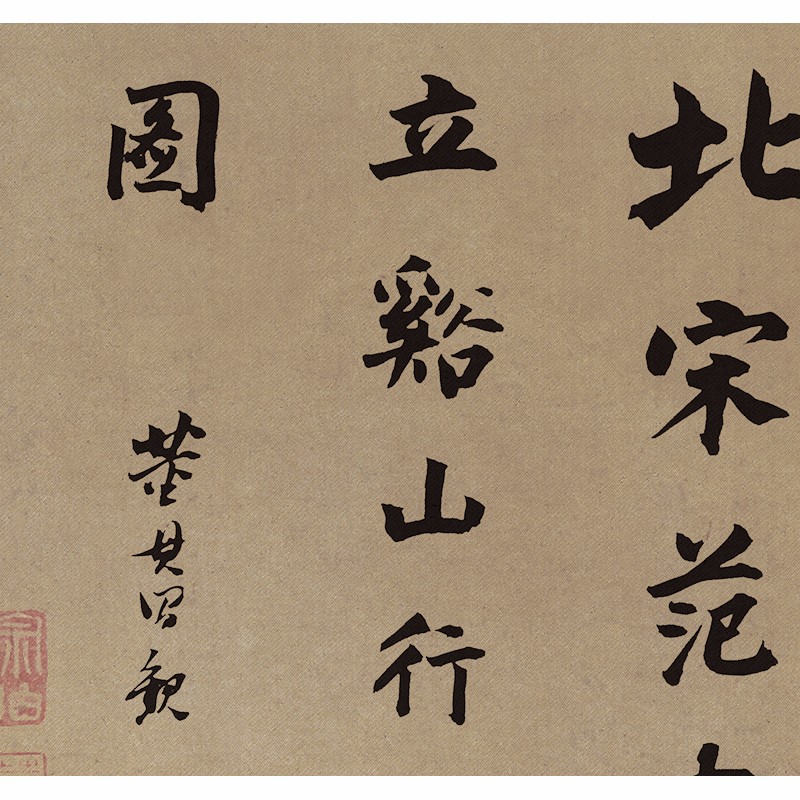 北宋范
立谿山行
圖
董其昌觀